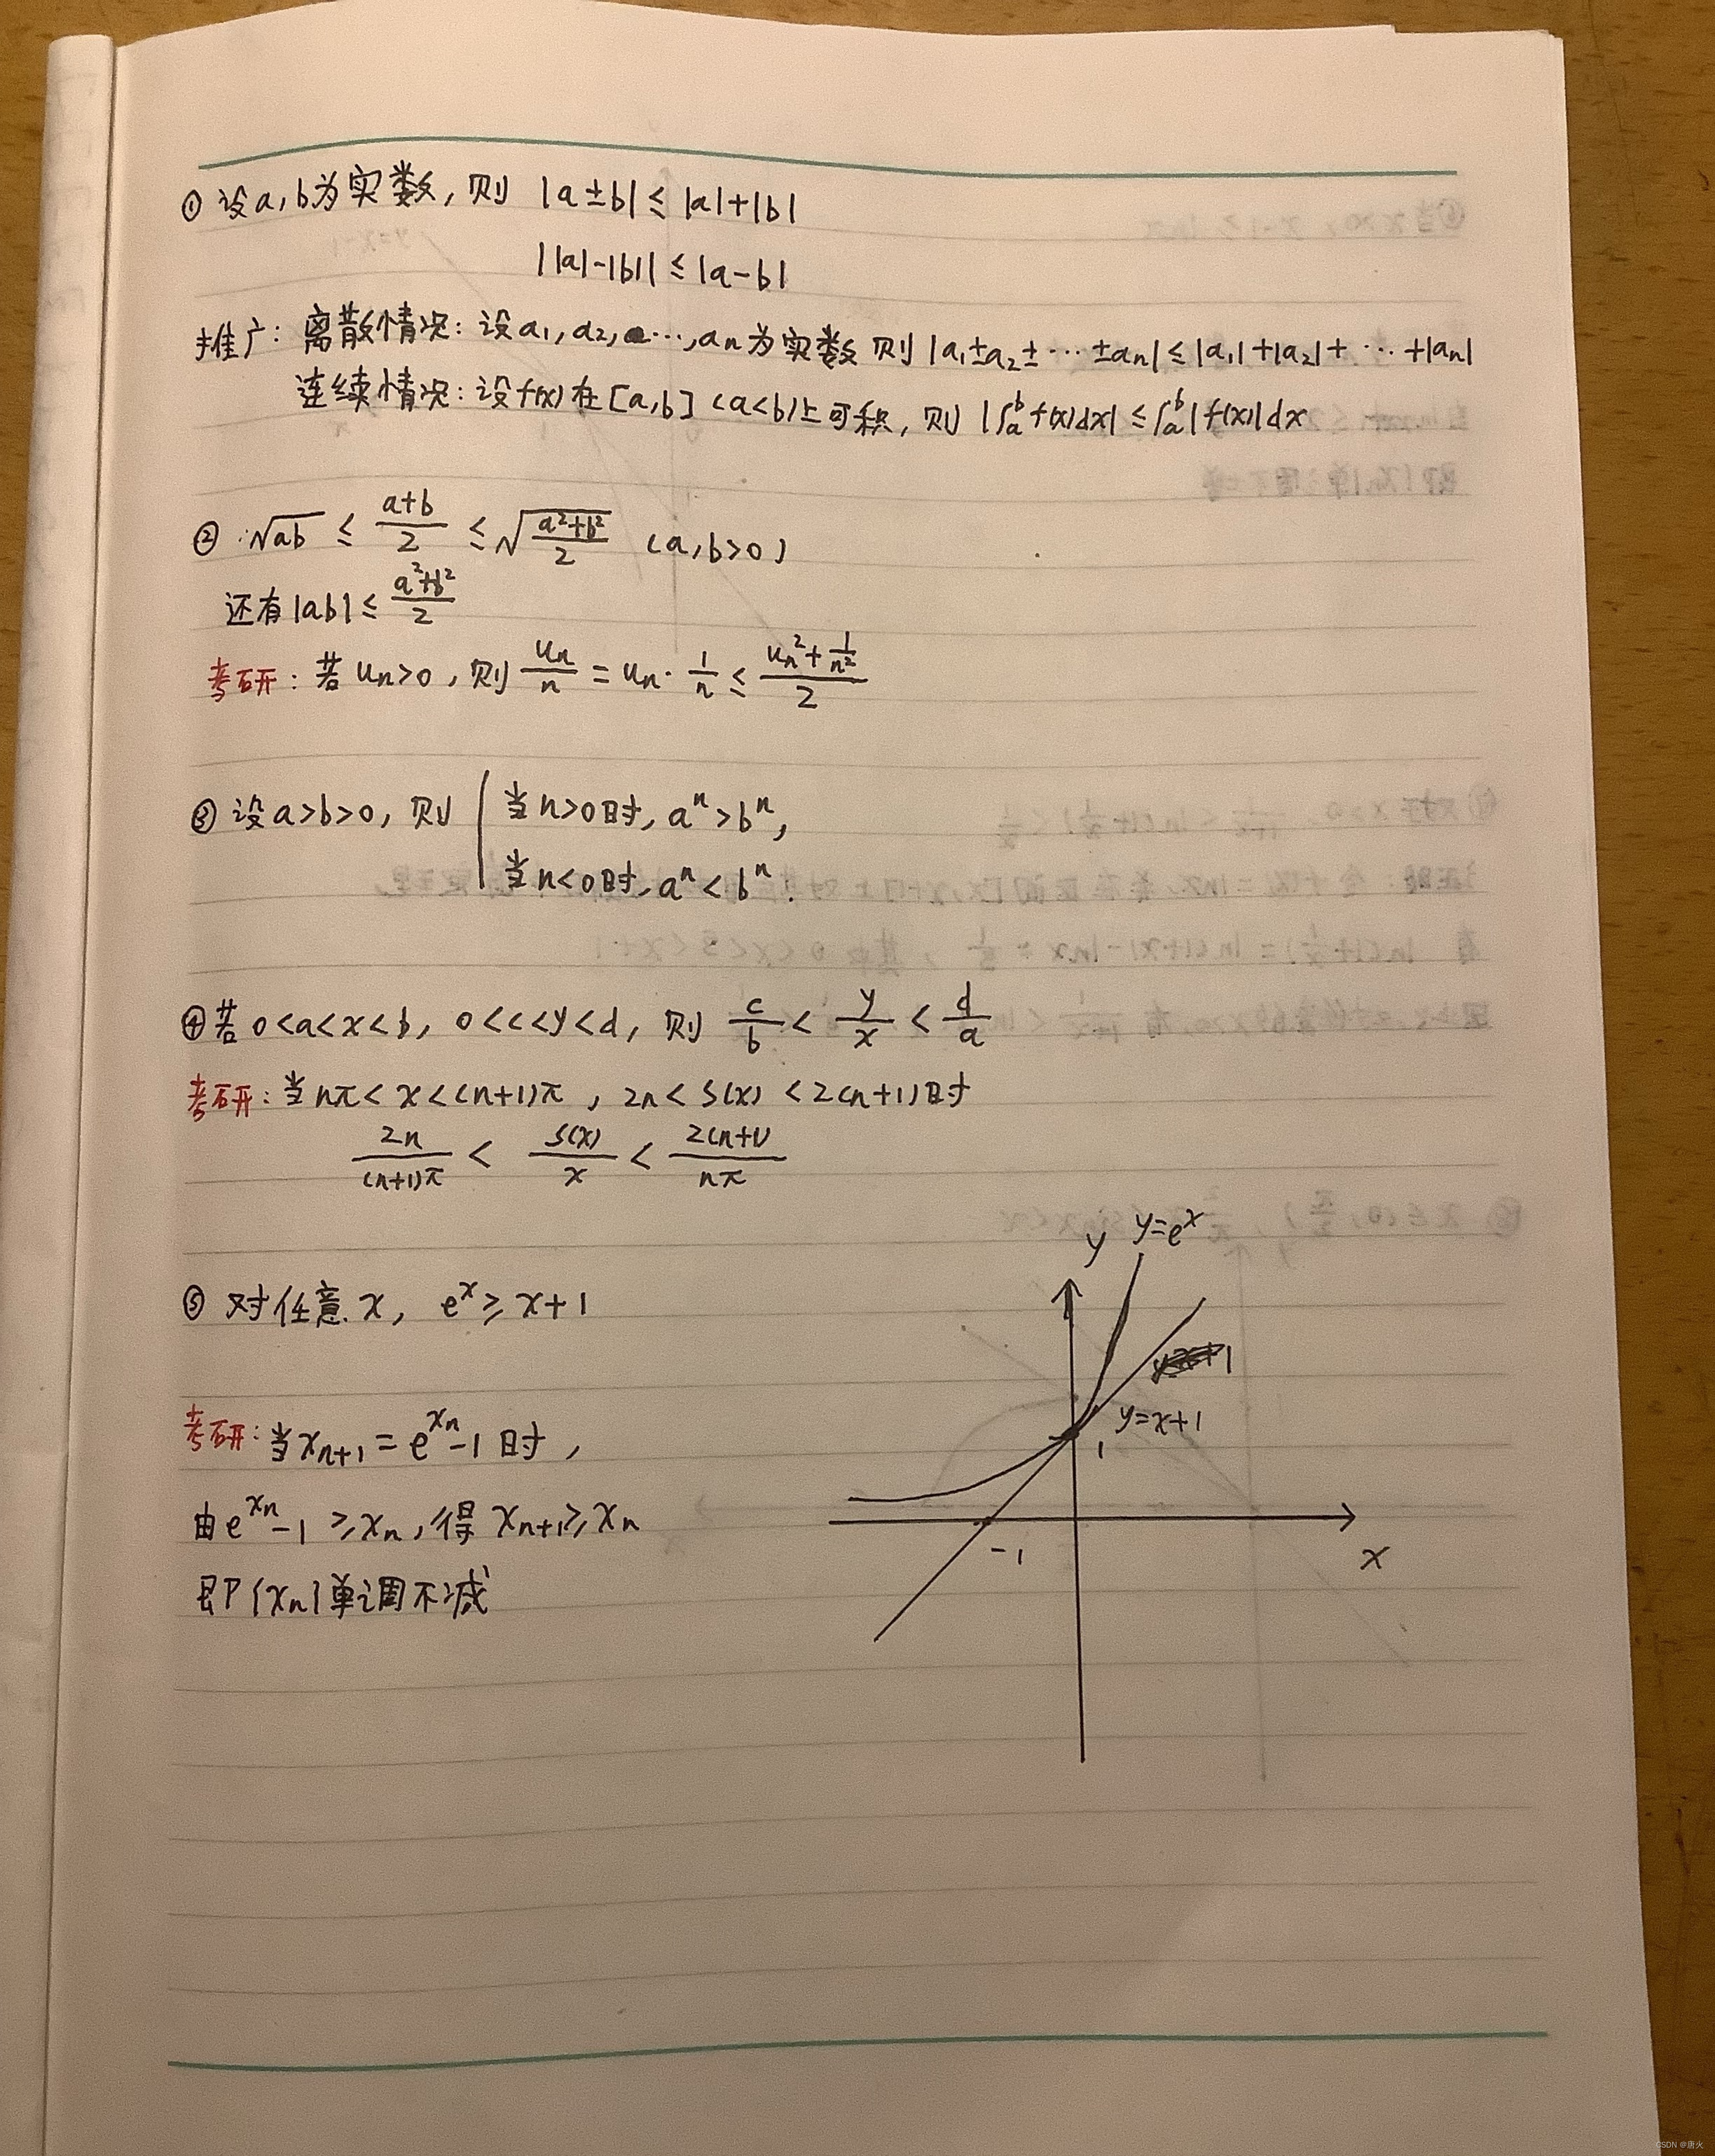 ① 设a,b为实数,则 |a±b|≤|a|+|b|
||a|-|b||≤|a-b|
推广: 离散情况: 设a₁,a₂,…,aₙ为实数 则|a₁±a₂±…±aₙ|≤|a₁|+|a₂|+…+|aₙ|
连续情况: 设f(x)在[a,b](a<b)上可积,则 |∫ₐᵇf(x)dx|≤∫ₐᵇ|f(x)|dx
② √ab ≤ (a+b)/2 ≤ √((a²+b²)/2) (a,b>0)
还有|ab|≤(a²+b²)/2
考研: 若uₙ>0,则 uₙ/n = uₙ·1/n ≤ (uₙ²+1/n²)/2
③ 设a>b>0,则 当n>0时,aⁿ>bⁿ,
当n<0时,aⁿ<bⁿ.
④ 若0<a<x<b, 0<c<y<d, 则 c/b < y/x < d/a
考研: 当nπ<x<(n+1)π, 2n<S(x)<2(n+1)时
2n/((n+1)π) < S(x)/x < 2(n+1)/(nπ)
y y=eˣ
⑤ 对任意x, eˣ≥x+1
y=x+1
1
考研: 当xₙ₊₁=e^(xₙ)-1时,
由e^(xₙ)-1≥xₙ,得 xₙ₊₁≥xₙ
-1
x
即{xₙ}单调不减
CSDN @唐火